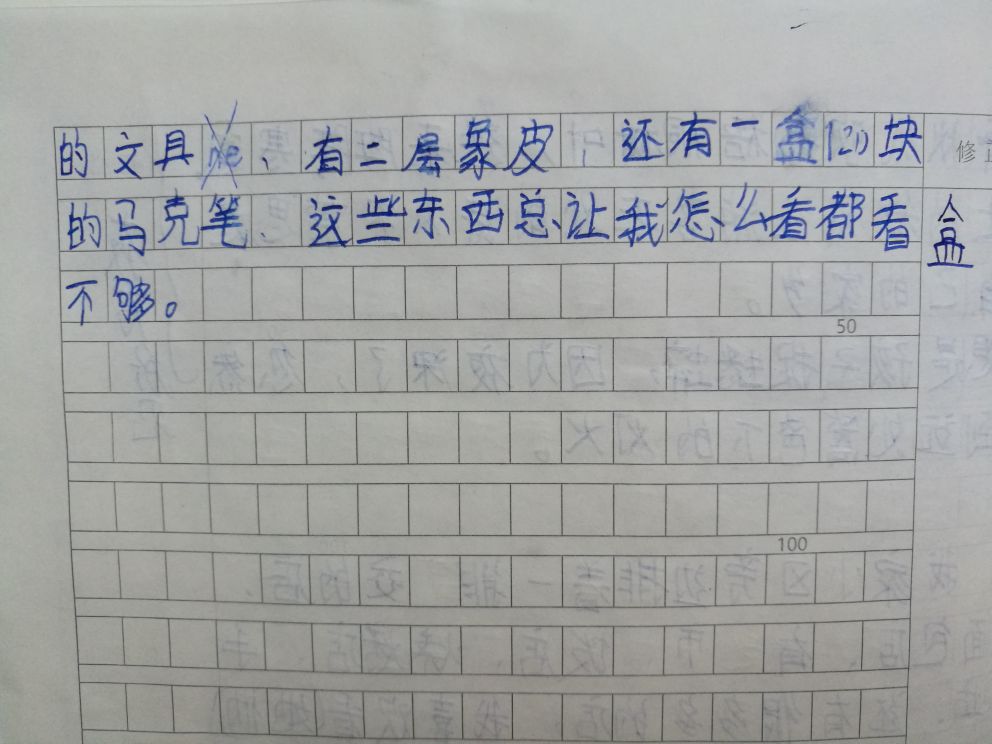 的文具he、有二层象皮，还有一盒120块
修正
的马克笔、这些东西总让我怎么看都看
盒
不够。
50
100